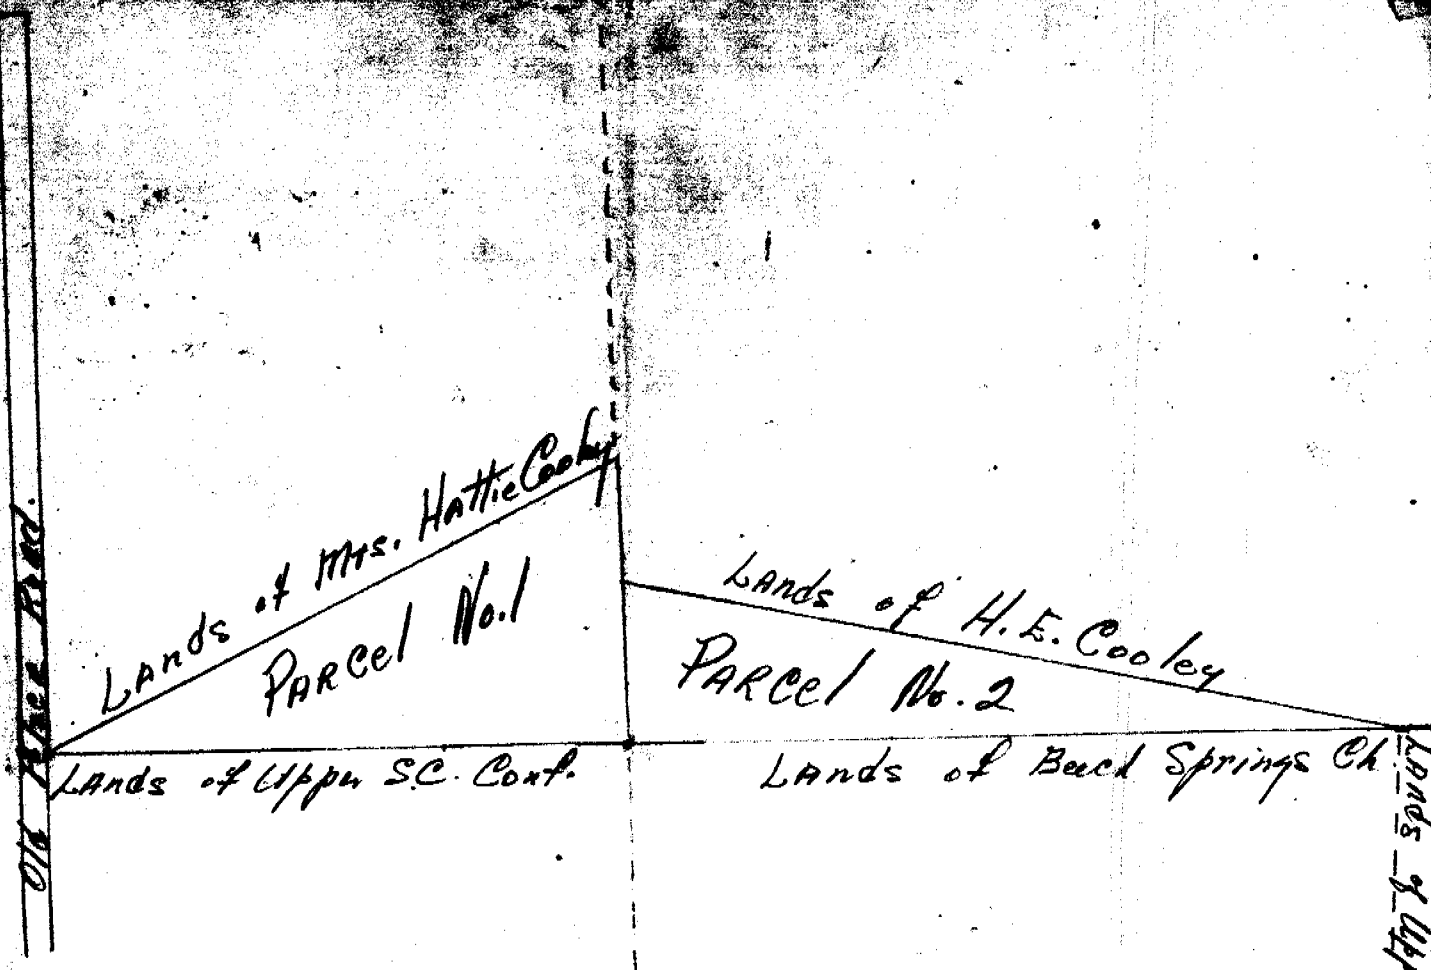 Old River Road.
Lands of Mrs. Hattie Cooley
Parcel No. 1
Lands of H. E. Cooley
Parcel No. 2
Lands of Upper S.C. Conf.
Lands of Beech Springs Ch.
Lands of